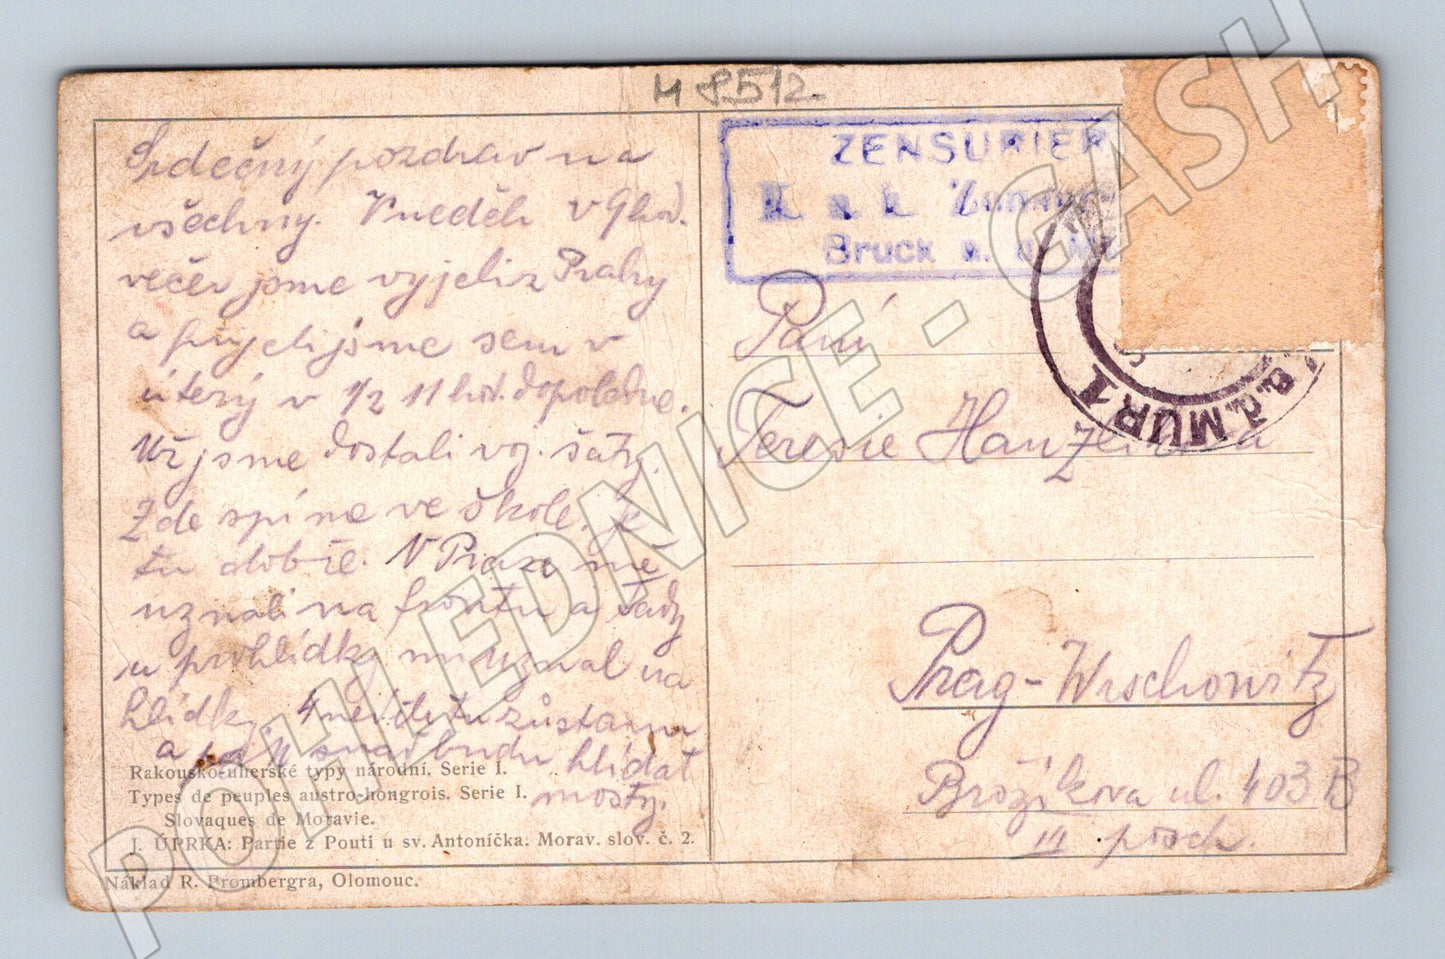 H 8512
Srdečný pozdrav na
všechny. V neděli v 9 hod.
večer jsme vyjeli z Prahy
a přijeli jsme sem v
úterý v 1/2 11 hod. dopoledne.
Už jsme dostali voj. šaty.
Zde spíme ve škole. Je
tu dobře. V Praze mě
uznali na frontu a tady
u prohlídky mi uznal na
hlídky. 4 neděle tu zůstanu
a pak snad budu hlídat
mosty.
Rakousko-uherské typy národní. Serie I.
Types de peuples austro-hongrois. Serie I.
Slovaques de Moravie.
J. ÚPRKA: Partie z Pouti u sv. Antoníčka. Morav. slov. č. 2.
Náklad R. Prombergra, Olomouc.
ZENSURIER
K. u. k. Zensurs
Bruck a. d. M
a.d. MUR 1
Paní
Teresie Hanzlíková
Prag-Wrschowitz
Brožíkova ul. 403 B
III posch.
POHLEDNICE - GASH